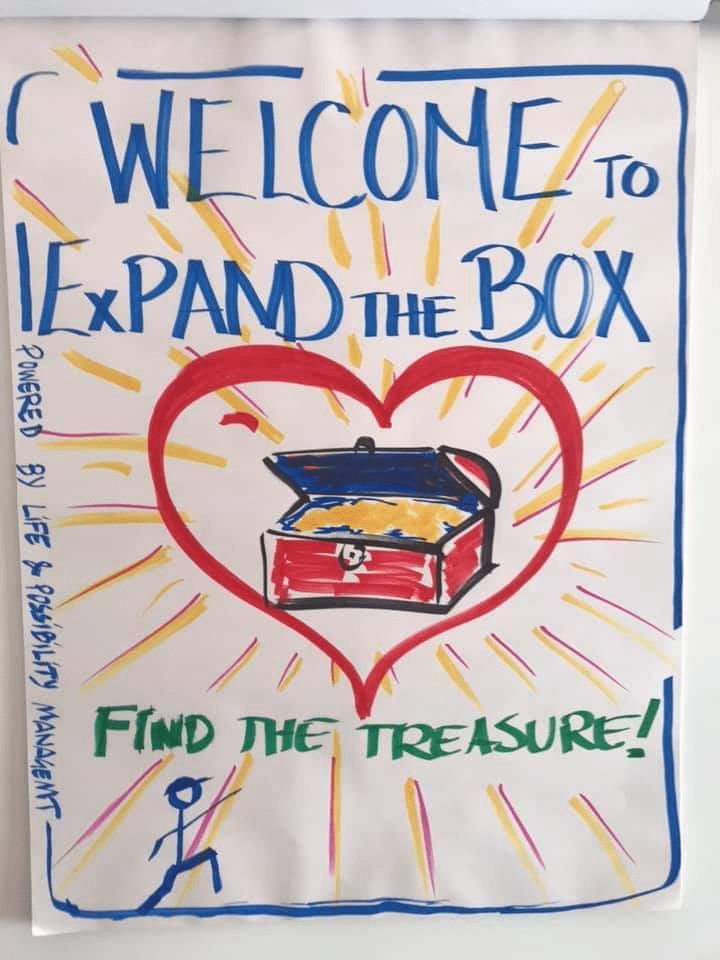 WELCOME TO
EXPAND THE BOX
POWERED BY LIFE & POSSIBILITY MANAGEMT
FIND THE TREASURE!